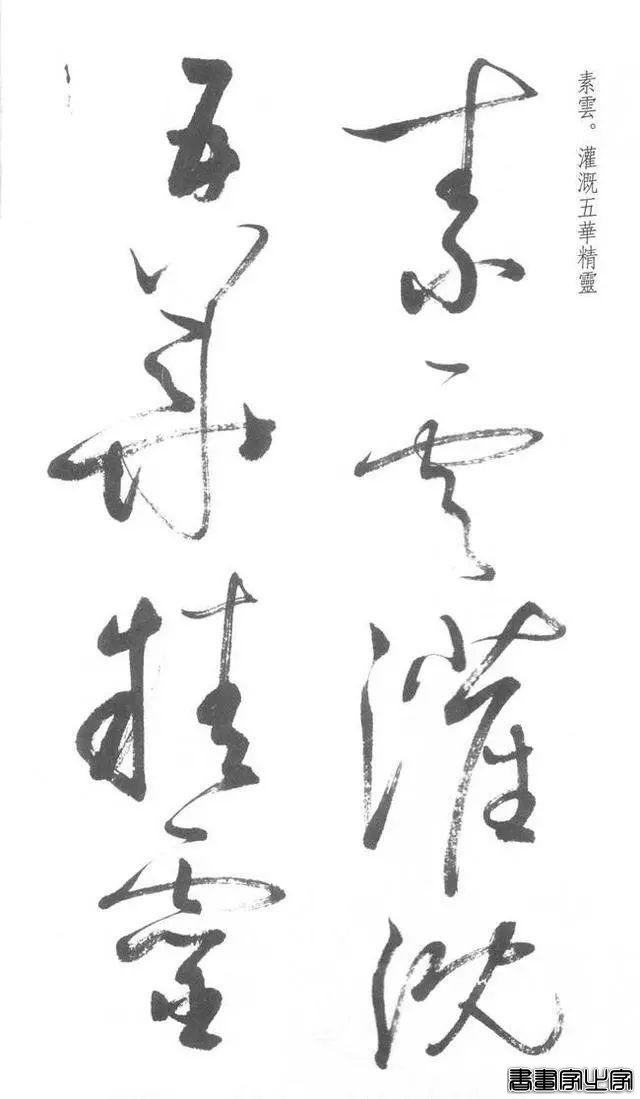 素雲。灌溉五華精靈
素雲灌溉
五華精靈
書畫家之家